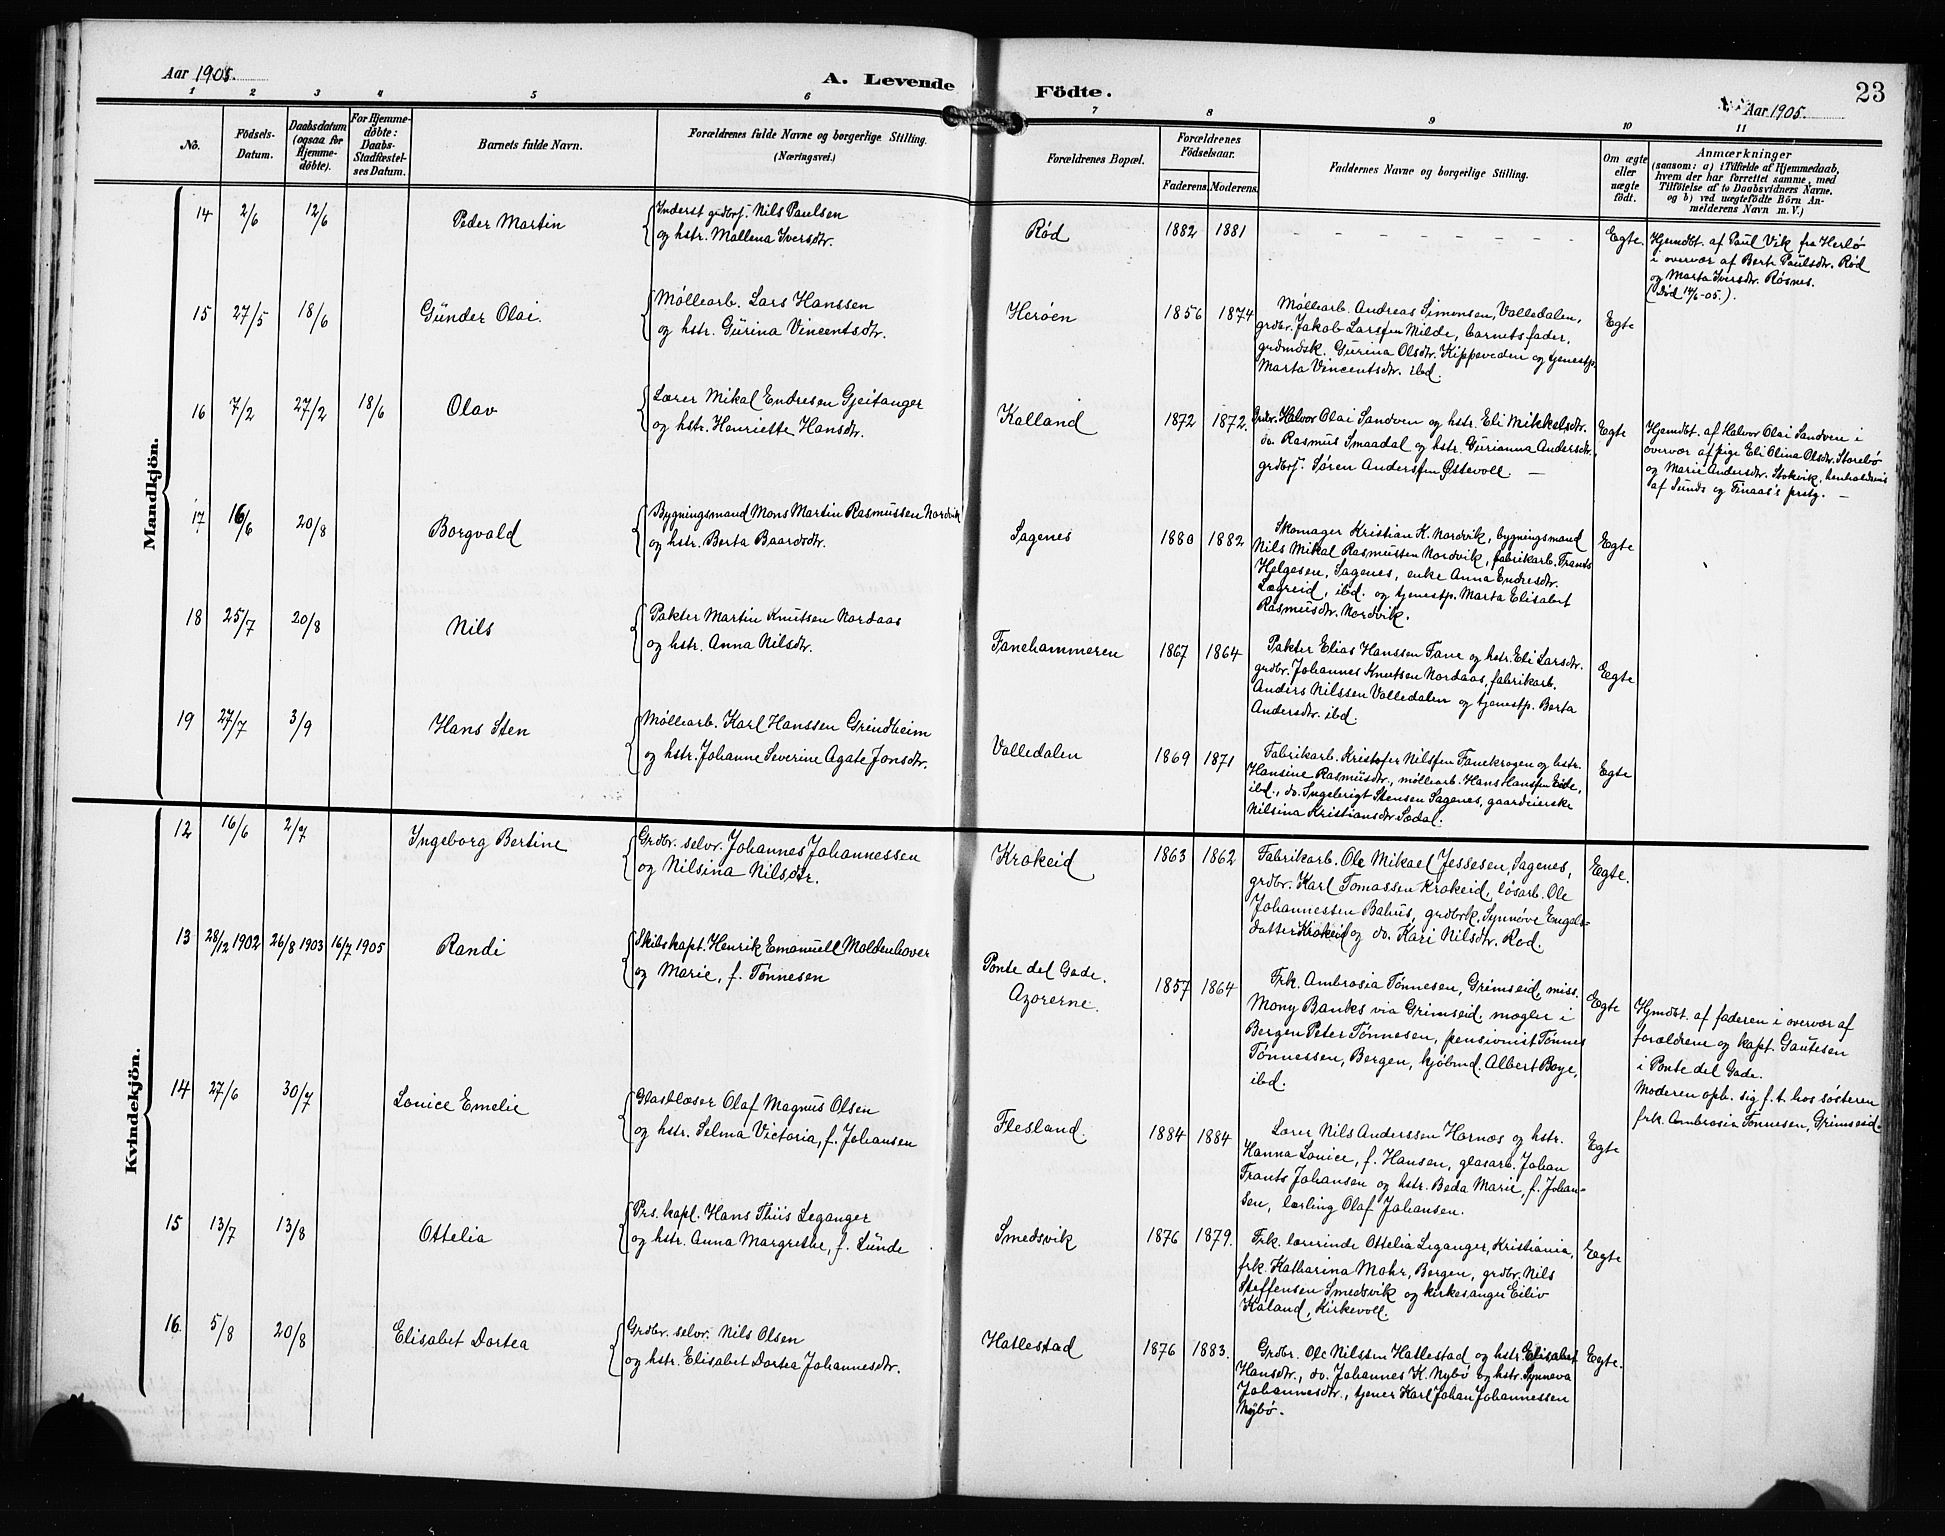 23
Aar 1905.
A. Levende Födte.
Aar 1905.
1 2 3 4 5 6 7 8 9 10 11
No.
Födsels-Datum.
Daabsdatum (ogsaa for Hjemme-døbte).
For Hjemme-døbte: Daabs-Stadfæstel-ses Datum.
Barnets fulde Navn.
Forældrenes fulde Navne og borgerlige Stilling.
(Næringsvei.)
Forældrenes Bopæl.
Forældrenes Födselsaar.
Faderens. Moderens.
Faddernes Navne og borgerlige Stilling.
Om ægte eller uægte födt.
Anmærkninger
(saasom: a) i Tilfælde af Hjemmedaab,
hvem der har forrettet samme, med
Tilföielse af to Daabsvidners Navne,
og b) ved uægtefödte Börn An-
melderens Navn m. V.)
Mandkjön.
14 2/6 12/6 Peder Martin
Inderst grdbrs. Nils Paulsen
og hstr. Mallena Iversdtr.
Rød 1882 1881 – – – – – – – – Egte.
Hjemdbt. af Paul Vik fra Herlø
i overvær af Berte Paulsdtr. Rød
og Marta Iversdtr. Røsnes.
(Død 14/6-05.).
15 27/5 18/6 Gunder Olai.
Møllearb. Lars Hanssen
og hstr. Gurina Vincentsdtr.
Herøen 1856 1874
Møllearb. Andreas Simonsen, Valledalen,
grdbr. Jakob Larssen Milde, barnets fader,
grdmdsk. Gurina Olsdtr. Kippeveden og tjenestp.
Marta Vincentsdtr. ibd.
Egte
16 7/2 27/2 18/6 Olav
Lærer Mikal Endresen Gjeitanger
og hstr. Henriette Hansdtr.
Kalland 1872 1872.
Grdbr. Halvor Olai Sandven og hstr. Eli Mikkelsdtr.
do. Rasmus Smaadal og hstr. Gurianna Andersdtr.
grdbrs. Søren Anderssen Østevoll. —
Egte
Hjemdbt. af Halvor Olai Sandven i
overvær af pige Eli Olina Olsdtr. Storebø
og Marie Andersdtr. Stokvik, henholdsvis
af Sunds og Finaas's prstg. —
17 16/6 20/8 Borgvald
Bygningsmand Mons Martin Rasmussen Nordvik
og hstr. Berta Baardsdtr.
Sagenes 1880 1882
Skomager Kristian K. Nordvik, bygningsmand
Nils Mikal Rasmussen Nordvik, fabrikarb. Frants
Helgesen, Sagenes, enke Anna Endresdtr.
Lægreid, ibd. og tjenestp. Marta Elisabet
Rasmusdtr. Nordvik.
Egte
18 25/7 20/8 Nils
Pakter Martin Knutsen Nordaas
og hstr. Anna Nilsdtr.
Fanehammeren 1867 1864
Pakter Elias Hanssen Fane og hstr. Eli Larsdtr.
grdbr. Johannes Knutsen Nordaas, fabrikarb.
Anders Nilssen Valledalen og tjenestp. Berta
Andersdtr. ibd.
Egte
19 27/7 3/9 Hans Sten
Møllearb. Karl Hanssen Grindheim
og hstr. Johanne Severine Agate Jonsdtr.
Valledalen 1869 1871
Fabrikarb. Kristofer Nilssen Fanekrogen og hstr.
Hansine Rasmusdtr., møllearb. Hans Hanssen Eide,
ibd., do. Ingebrigt Stensen Sagenes, gaardeierske
Nilsina Kristiansdtr. Sædal.
Egte
Kvindekjön.
12 16/6 2/7 Ingeborg Bertine
Grdbr. selvr. Johannes Johannessen
og Nilsina Nilsdtr.
Krokeid 1863 1862
Fabrikarb. Ole Mikael Jessesen, Sagenes,
grdbr. Karl Tomassen Krokeid, løsarb. Ole
Johannessen Bahus, grdbrk. Synnøve Engels-
datter Krokeid og do. Kari Nilsdtr. Rød.
Egte.
13 28/12 1902 26/8 1903 16/7 1905 Randi
Skibskapt. Henrik Emanuell Moldenhover
og Marie, f. Tønnesen
Ponte del Gade.
Azorerne. 1857 1864
Frk. Ambrosia Tønnesen, Grimseid, miss.
Mony Banks via Grimseid, mægler i
Bergen Peter Tønnesen, pensionist Tønnes
Tønnessen, Bergen, kjøbmd. Albert Boye,
ibd.
Egte
Hjmdbt. af faderen i overvær af
forældrene og kapt. Gautesen
i Ponte del Gade.
Moderen oph. sig f. t. hos søsteren
frk. Ambrosia Tønnesen, Grimseid.
14 27/6 30/7 Lovice Emelie
Glasblæser Olaf Magnus Olsen
og hstr. Selma Victoria, f. Johansen
Flesland. 1884 1884
Lærer Nils Anderssen Hornæs og hstr.
Hanna Lovice, f. Hansen, glasarb. Johan
Frants Johansen og hstr. Beda Marie, f. Johan-
sen, lærling Olaf Johansen.
Egte
15 13/7 13/8 Ottelia
Prs. kapl. Hans Thiis Leganger
og hstr. Anna Margrethe, f. Lunde
Smedsvik 1876 1879.
Frk. lærerinde Ottelia Leganger, Kristiania,
frk. Katharina Mohr, Bergen, grdbr. Nils
Steffensen Smedsvik og kirkesanger Eiliv
Kaland, Kirkevoll.
Egte
16 5/8 20/8 Elisabet Dortea
Grdbr. selvr. Nils Olsen
og hstr. Elisabet Dortea Johannesdtr.
Hatlestad 1876 1883.
Grdbr. Ole Nilssen Hatlestad og hstr. Elisabet
Hansdtr., do. Johannes K. Nybø og hstr. Synneva
Johannesdtr., tjener Karl Johan Johannessen
Nybø.
Egte.